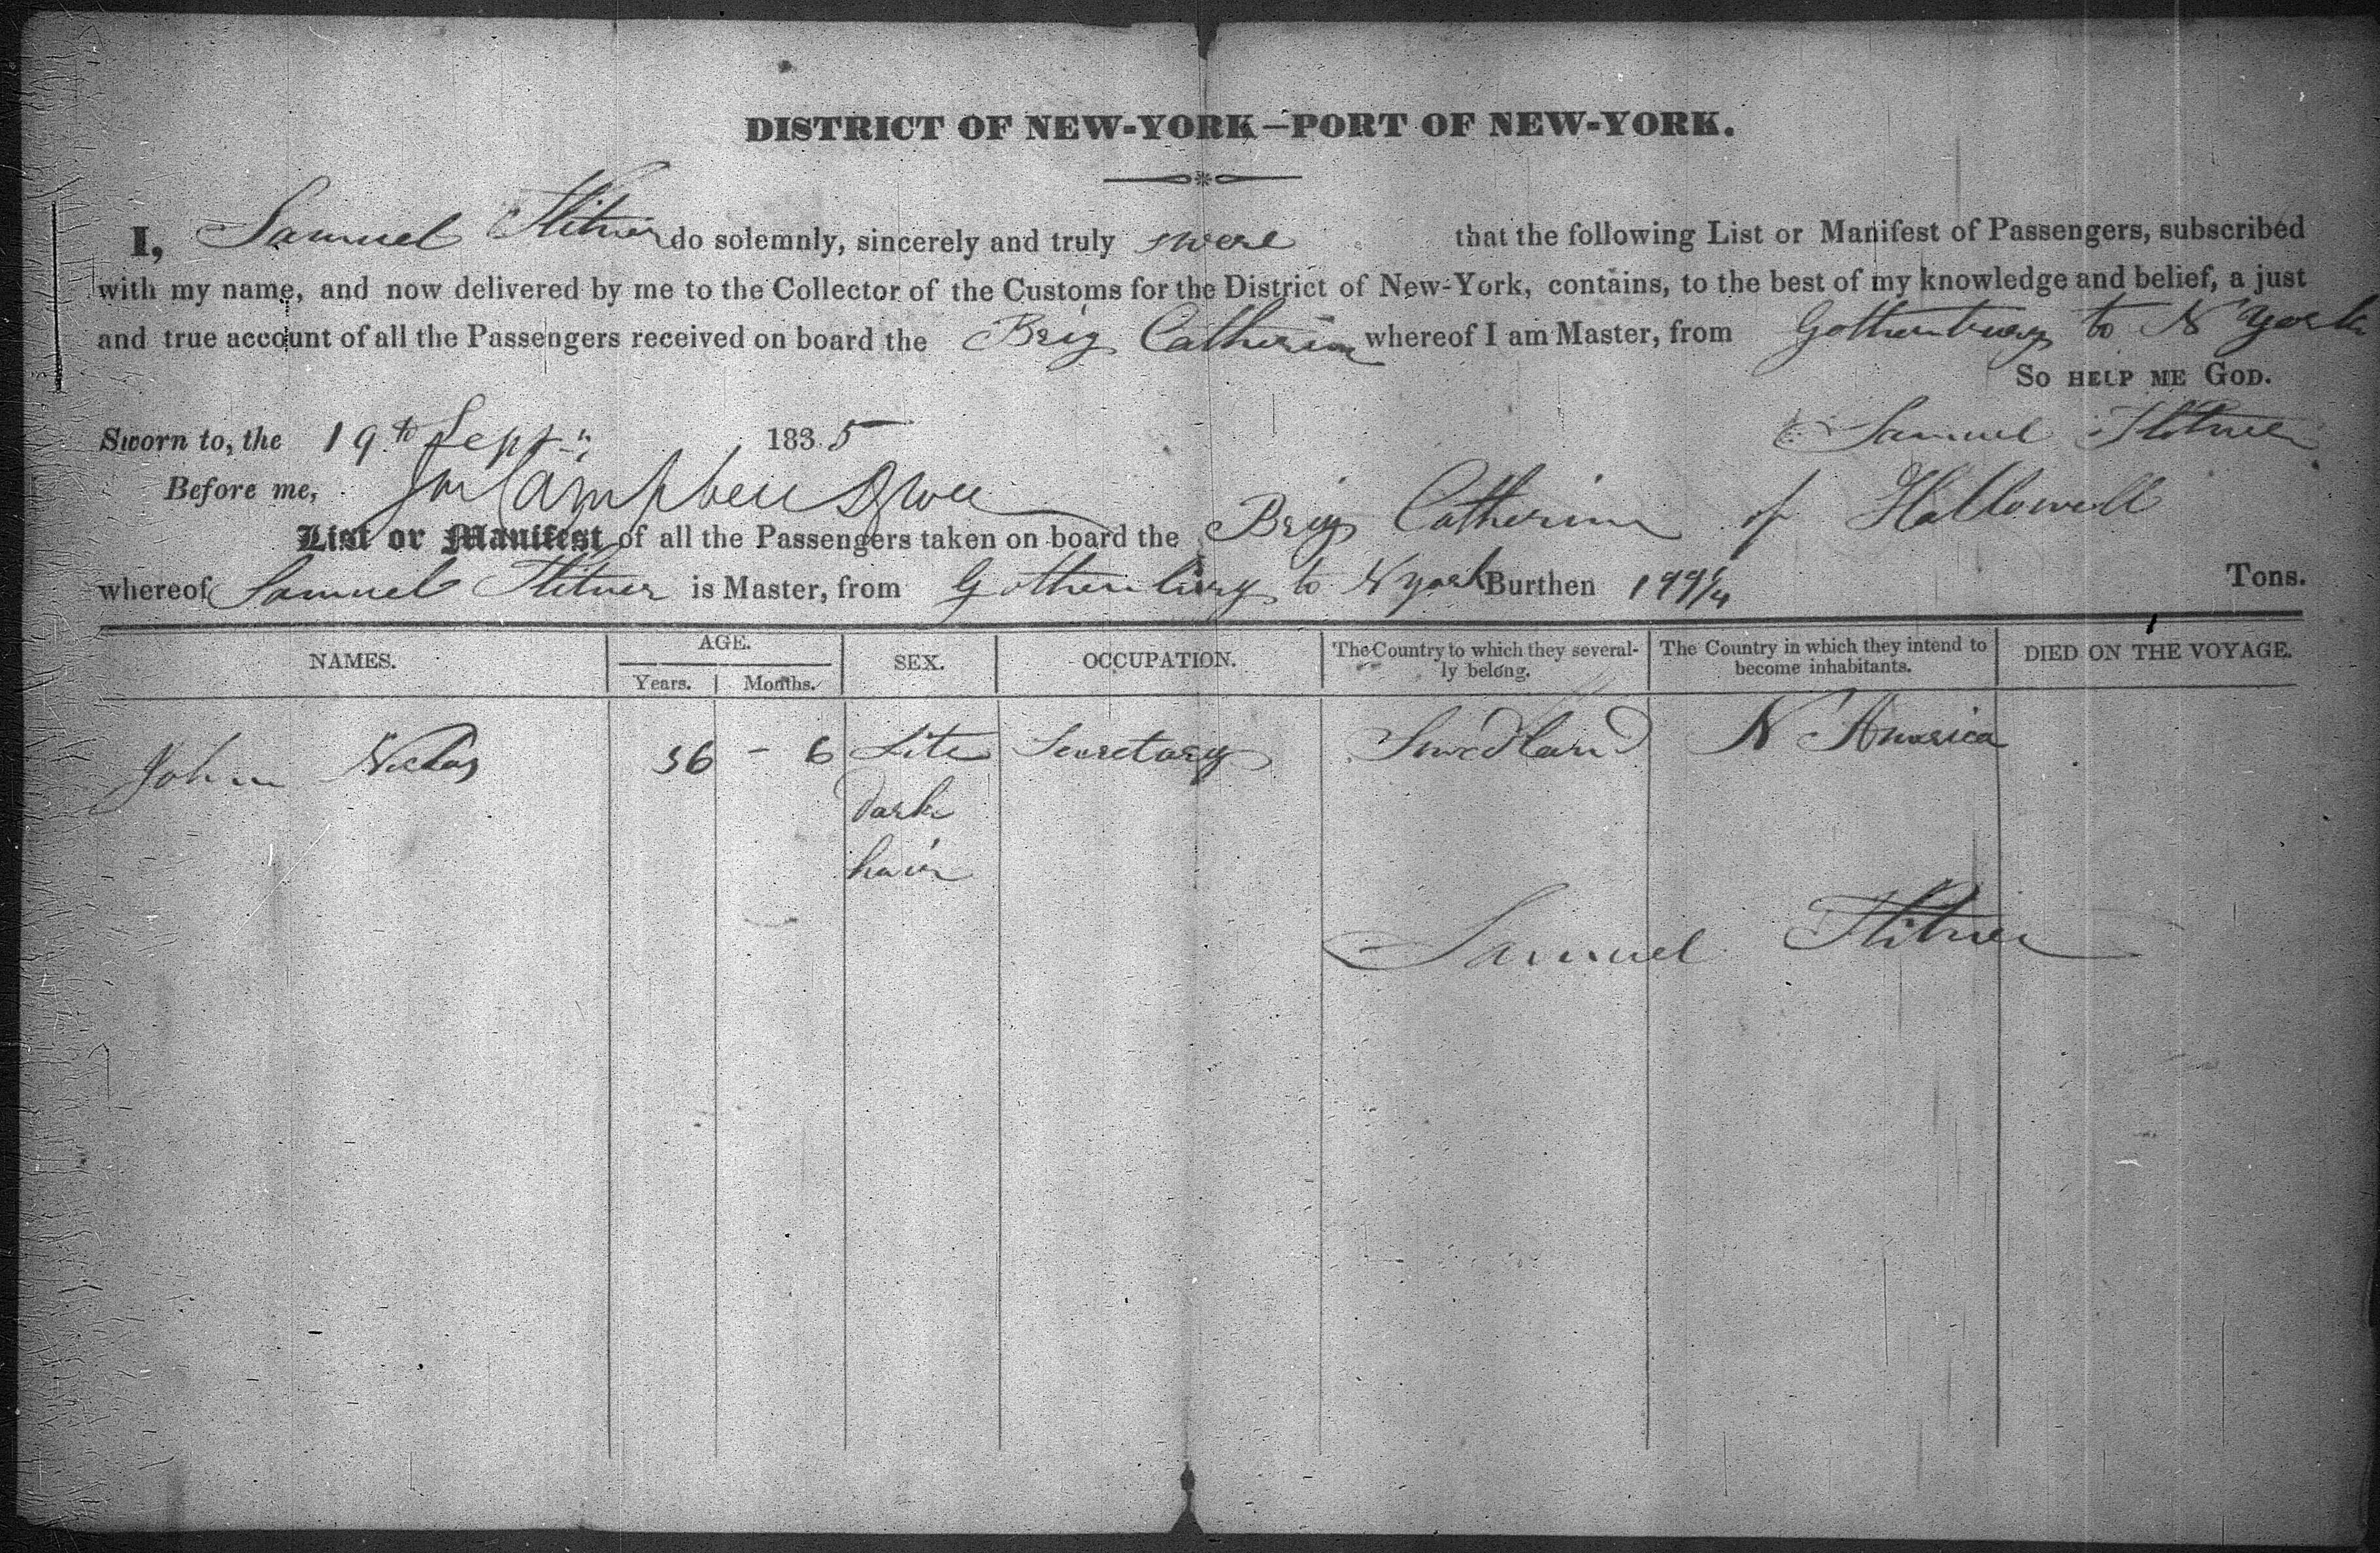 DISTRICT OF NEW-YORK—PORT OF NEW-YORK.
I, Samuel Flitner do solemnly, sincerely and truly swere that the following List or Manifest of Passengers, subscribed
with my name, and now delivered by me to the Collector of the Customs for the District of New-York, contains, to the best of my knowledge and belief, a just
and true account of all the Passengers received on board the Brig Catherine whereof I am Master, from Gothenburg to N York
SO HELP ME GOD.
Sworn to, the 19th Sept 1835 Samuel Flitner
Before me, Campbell
List or Manifest of all the Passengers taken on board the Brig Catherine of Hallowell
whereof Samuel Flitner is Master, from Gothenburg to N york Burthen Tons.
NAMES. AGE. Years. Months. SEX. OCCUPATION. The Country to which they several-ly belong. The Country in which they intend to become inhabitants. DIED ON THE VOYAGE.
John 36 - 6 Lite Secretary Swedland N America
dark
hair
Samuel Flitner